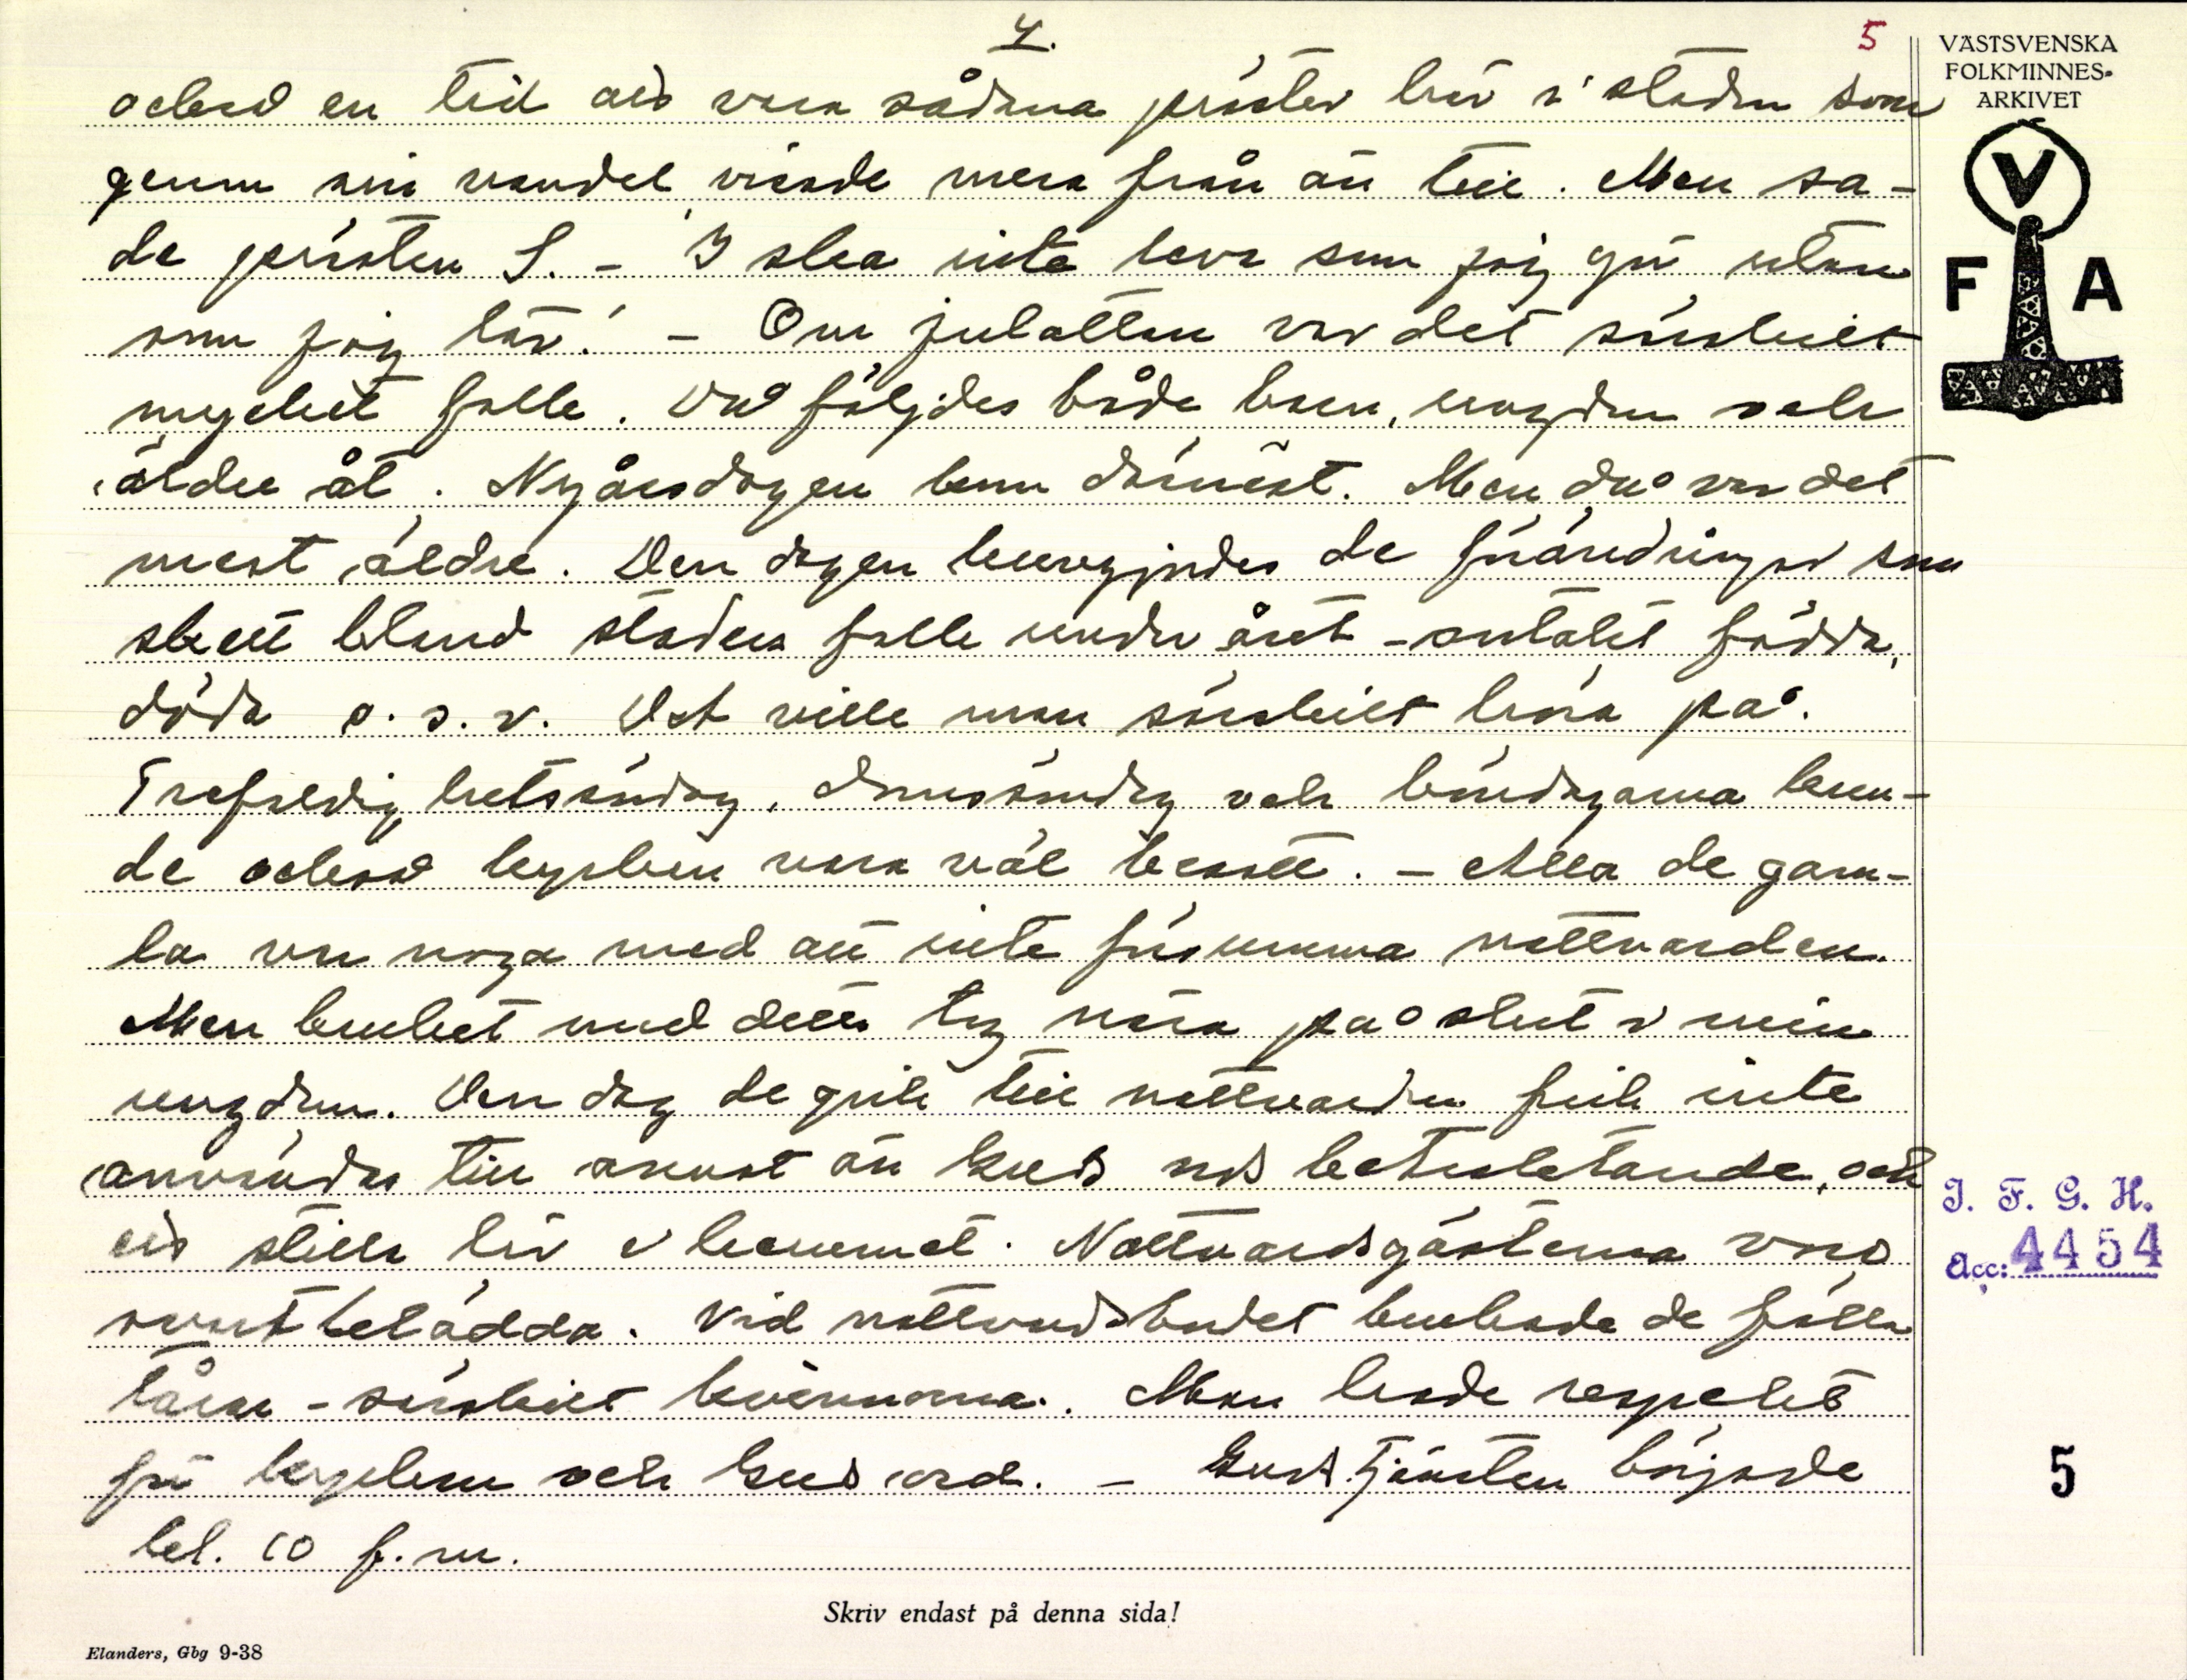 4.
5
VÄSTSVENSKA
FOLKMINNES-
ARKIVET
också en tid att vara sådana präster här i staden som
genom sin vandel visade mera från än till. Men sa-
de prästen S. - I ska inte leva som jag gör utan
som jag lär! - Om julottan var det särskilt
mycket folk. Då följdes både barn, ungdom och
äldre åt. Nyårsdagen kom därnäst. Men då var det
mest äldre. Den dagen kungjordes de förändringar som
skett bland stadens folk under året - antalet födda,
döda o. s. v. Det ville man särskilt höra på.
Trefaldighetsöndag, domsöndag och böndagarna kun-
de också kyrkan vara väl besatt. - Alla de gam-
la var noga med att inte försumma nattvarden.
Men bruket med detta tog nära på slut i min
ungdom. Den dag de gick till nattvarden fick inte
användas till annat än Guds ords betraktande, och
ett stilla liv i hemmet. Nattvardsgästerna voro
svartklädda. Vid nattvardsbordet brukade de fälla
tårar - särskilt kvinnorna. Man hade respekt
för kyrkan och Guds ord. - Gudstjänsten började
kl. 10 f. m.
V
F A
I. F. G. H.
Acc: 4454
5
Skriv endast på denna sida!
Elanders, Gbg 9-38